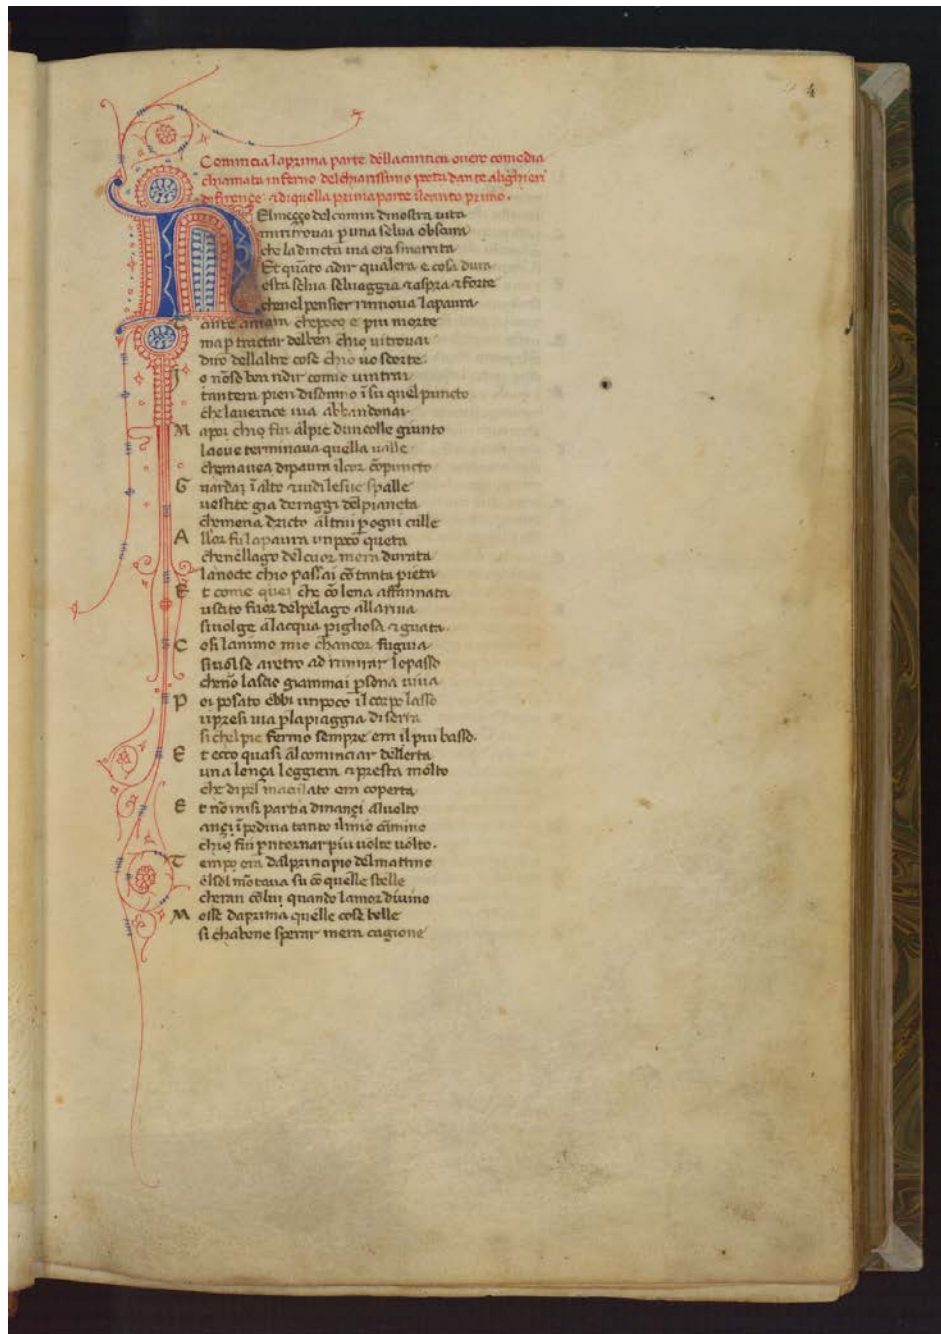 4
Comincia laprima parte dellacantica overo comedia
chiamata inferno delchiarissimo poeta dante alighieri
difirençe · ⁊ diquella prima parte ilcanto primo ·
NElmeçço del camin dinostra vita
miritrovai p una selva obscura
che ladiricta via era smarrita
Et quãto adir qualera e cosa dura
esta selva selvaggia ⁊ aspra ⁊ forte
chenel pensier rinnova lapaura
Tante amara chepoco e piu morte
ma p tractar delben chio vitrovai
diro dellaltre cose chio vo scorte ·
Io nõso ben ridir comio vintrai
tantera pien disonno ĩ su quel puncto
che laverace via abbandonai
Mapoi chio fui alpie duncolle giunto
laove terminava quella valle
chemavea dipaura ilcor cõpuncto
Guardai ĩ alto ⁊ vidi lesue spalle
vestite gia deraggi delpianeta
chemena dricto altrui p ogni calle
Allor fu lapaura unpoco queta
chenellago delcuor mera durata
lanocte chio passai cõ tanta pieta
Et come quei che cõ lena affannata
uscito fuor delpelago allariva
sivolge alacqua pigliosa ⁊ guata ·
Cosi lanimo mio chancor fugiva
sivolse aretro ad rimirar lopasso
chenõ lascio giammai psona viva
Poi posato ebbi unpoco il corpo lasso
ripresi via p lapiaggia diserta
si chelpie fermo sempre era il piu basso ·
Et ecco quasi al cominciar dellerta
una lonça leggiera ⁊ presta molto
che dipel maculato era coperta
Et nõ misi partia dinançi alvolto
ançi ĩpediva tanto ilmio camino
chio fui p ritornar piu volte volto ·
Tempo era dalprincipio delmattino
elsol mõtava su cõ quelle stelle
cheran cõlui quando lamor divino
Mosse daprima quelle cose belle
si chabene sperar mera cagione